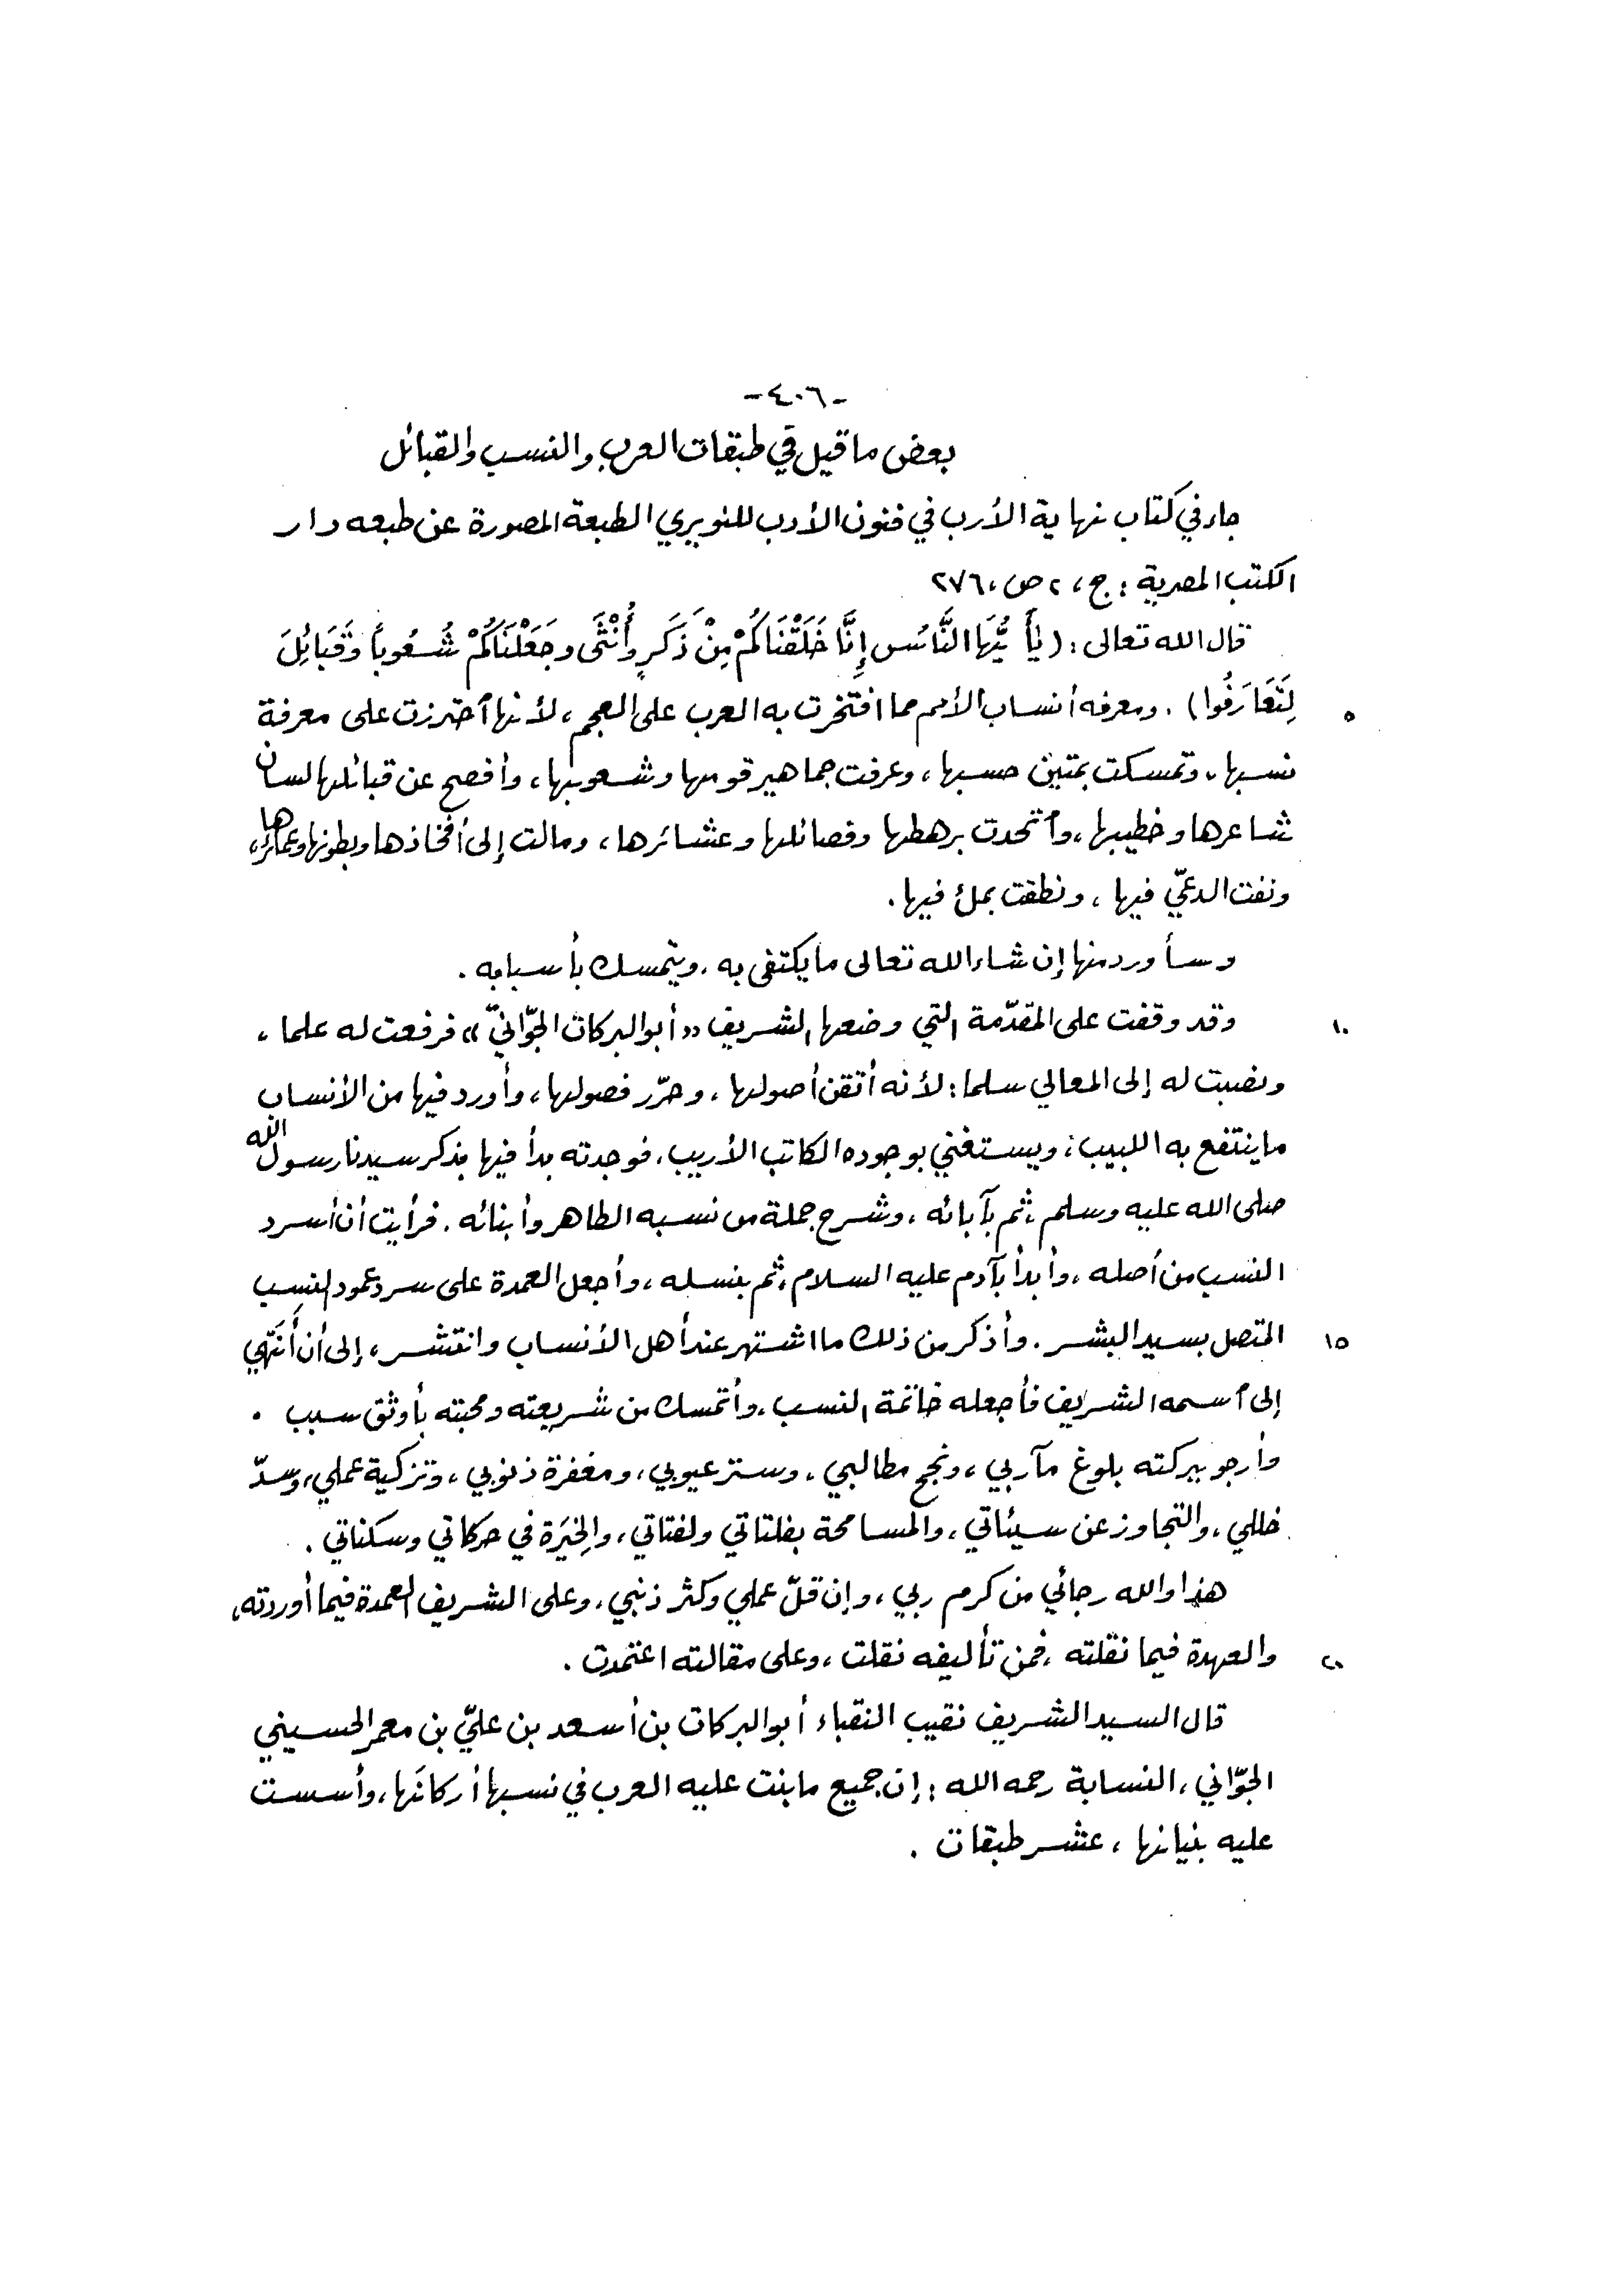 -٤٠٦-
بعض ما قيل في طبقات العرب والنسب والقبائل
جاء في كتاب نهاية الأرب في فنون الأدب للنويري الطبعة المصورة عن طبعه دار
الكتب المصرية : ج، ٢ ص، ٢٧٦
قال الله تعالى : ( يأَيُّهَا النَّاسُ إِنَّا خَلَقْنَاكُمْ مِنْ ذَكَرٍ وأُنْثَى وجَعَلْنَاكُمْ شُعُوباً وقَبَائِلَ
لِتَعَارَفُوا ) . ومعرفه أنساب الأمم مما افتخرت به العرب على العجم ، لأنها ٱحترزت على معرفة
٥
نسبها ، وتمسكت بمتين حسبها ، وعرفت جماهير قومها وشعوبها ، وأفصح عن قبائلها لسان
شاعرها وخطيبها ، وٱتحدت برهطها وفصائلها وعشائرها ، ومالت إلى أفخاذها وبطونها وعمائرها ،
ونفت الدعيّ فيها ، ونطقت بملء فيها .
وسأورد منها إن شاء الله تعالى ما يكتفى به ، ويتمسك بأسبابه .
وقد وقفت على المقدّمة التي وضعها الشريف « أبو البركات الجوّانيّ » فرفعت له علما ،
١٠
ونصبت له إلى المعالي سلما ؛ لأنه أتقن أصولها ، وحرّر فصولها ، وأورد فيها من الأنساب
ما ينتفع به اللبيب ، ويستغني بوجوده الكاتب الأريب ، فوجدته بدأ فيها بذكر سيدنا رسول الله
صلى الله عليه وسلم ، ثم بآبائه ، وشرح جملة من نسبه الطاهر وأبنائه . فرأيت أن أسرد
النسب من أصله ، وأبدأ بآدم عليه السلام ، ثم بنسله ، وأجعل العمدة على سرد عمود النسب
المتصل بسيد البشر . وأذكر من ذلك ما اشتهر عند أهل الأنساب وانتشر ، إلى أن أَنتهي
١٥
إلى ٱسمه الشريف فأجعله خاتمة النسب ، وأتمسك من شريعته ومحبته بأوثق سبب .
وأرجو ببركته بلوغ مآربي ، ونجح مطالبي ، وستر عيوبي ، ومغفرة ذنوبي ، وتزكية عملي ، وسدّ
خللي ، والتجاوز عن سيئاتي ، والمسامحة بفلتاتي ولفتاتي ، والخِيَرة في حركاتي وسكناتي .
هذا والله رجائي من كرم ربي ، وإن قلّ عملي وكثر ذنبي ، وعلى الشريف العمدة فيما أوردته ،
والعهدة فيما نقلته ، فمن تأليفه نقلت ، وعلى مقالته اعتمدت .
٢٠
قال السيد الشريف نقيب النقباء أبو البركات بن أسعد بن عليّ بن معمر الحسيني
الجوّاني ، النسابة رحمه الله : إن جميع ما بنت عليه العرب في نسبها أركانَها ، وأسست
عليه بنيانها ، عشر طبقات .